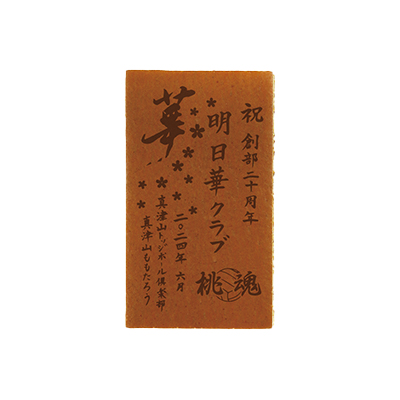 祝 創部二十周年
明日華クラブ
桃魂
華
二〇二四年 六月
真津山ドッジボール倶楽部
真津山ももたろう